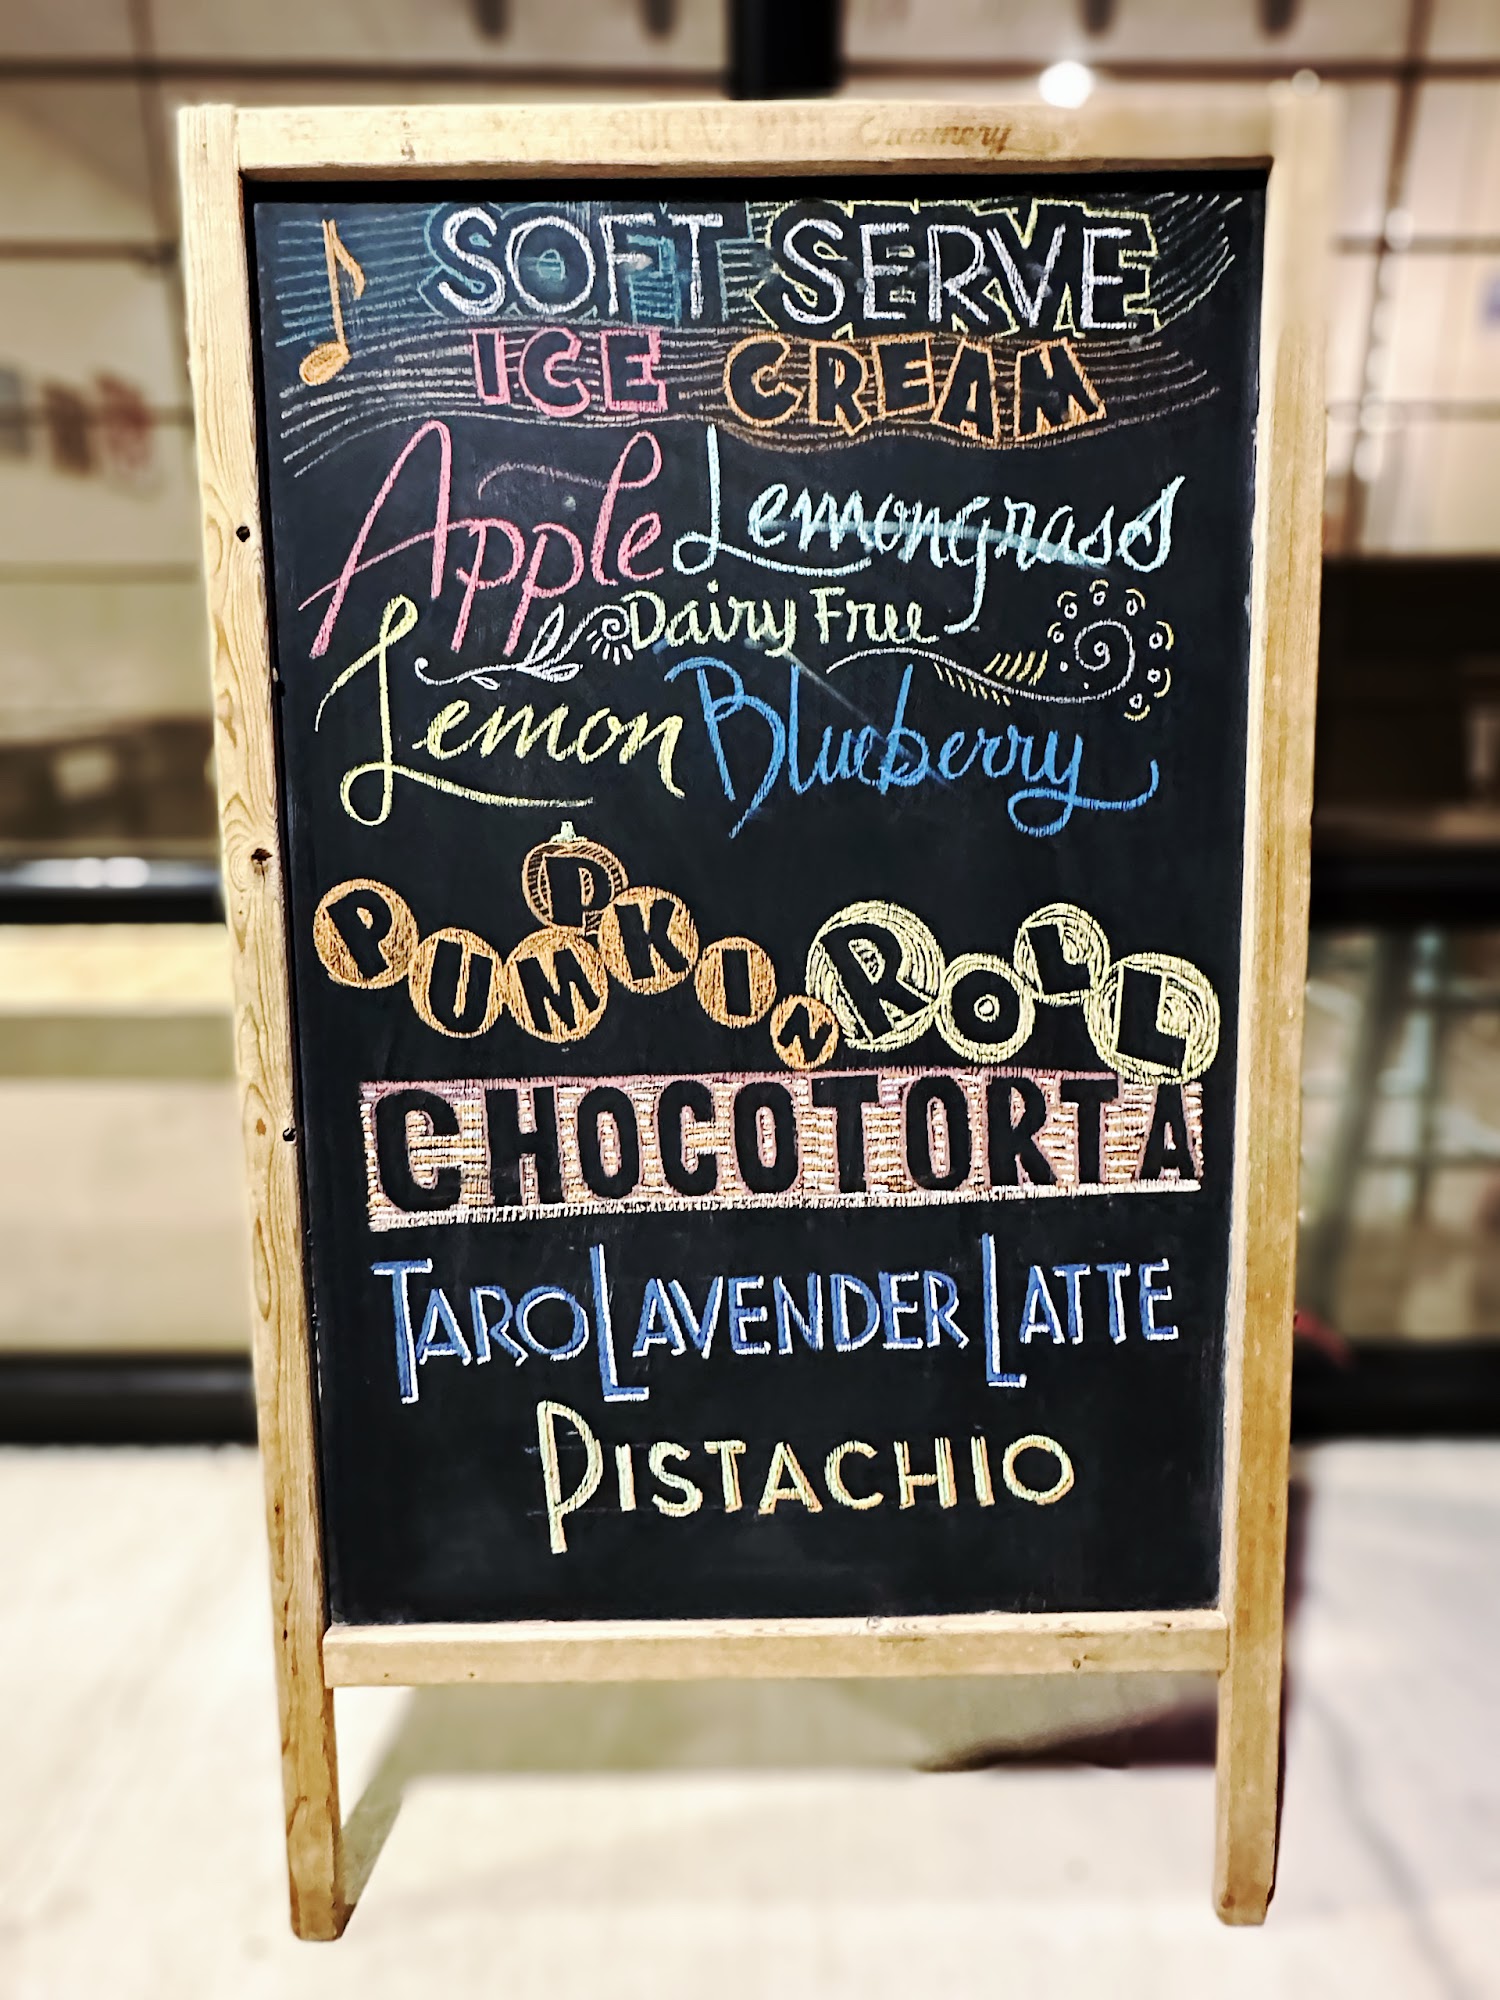 SOFT SERVE
ICE CREAM
Apple Lemongrass
Dairy Free
Lemon Blueberry
PUMPPKIN ROLL
CHOCOTORTA
TARO LAVENDER LATTE
PISTACHIO